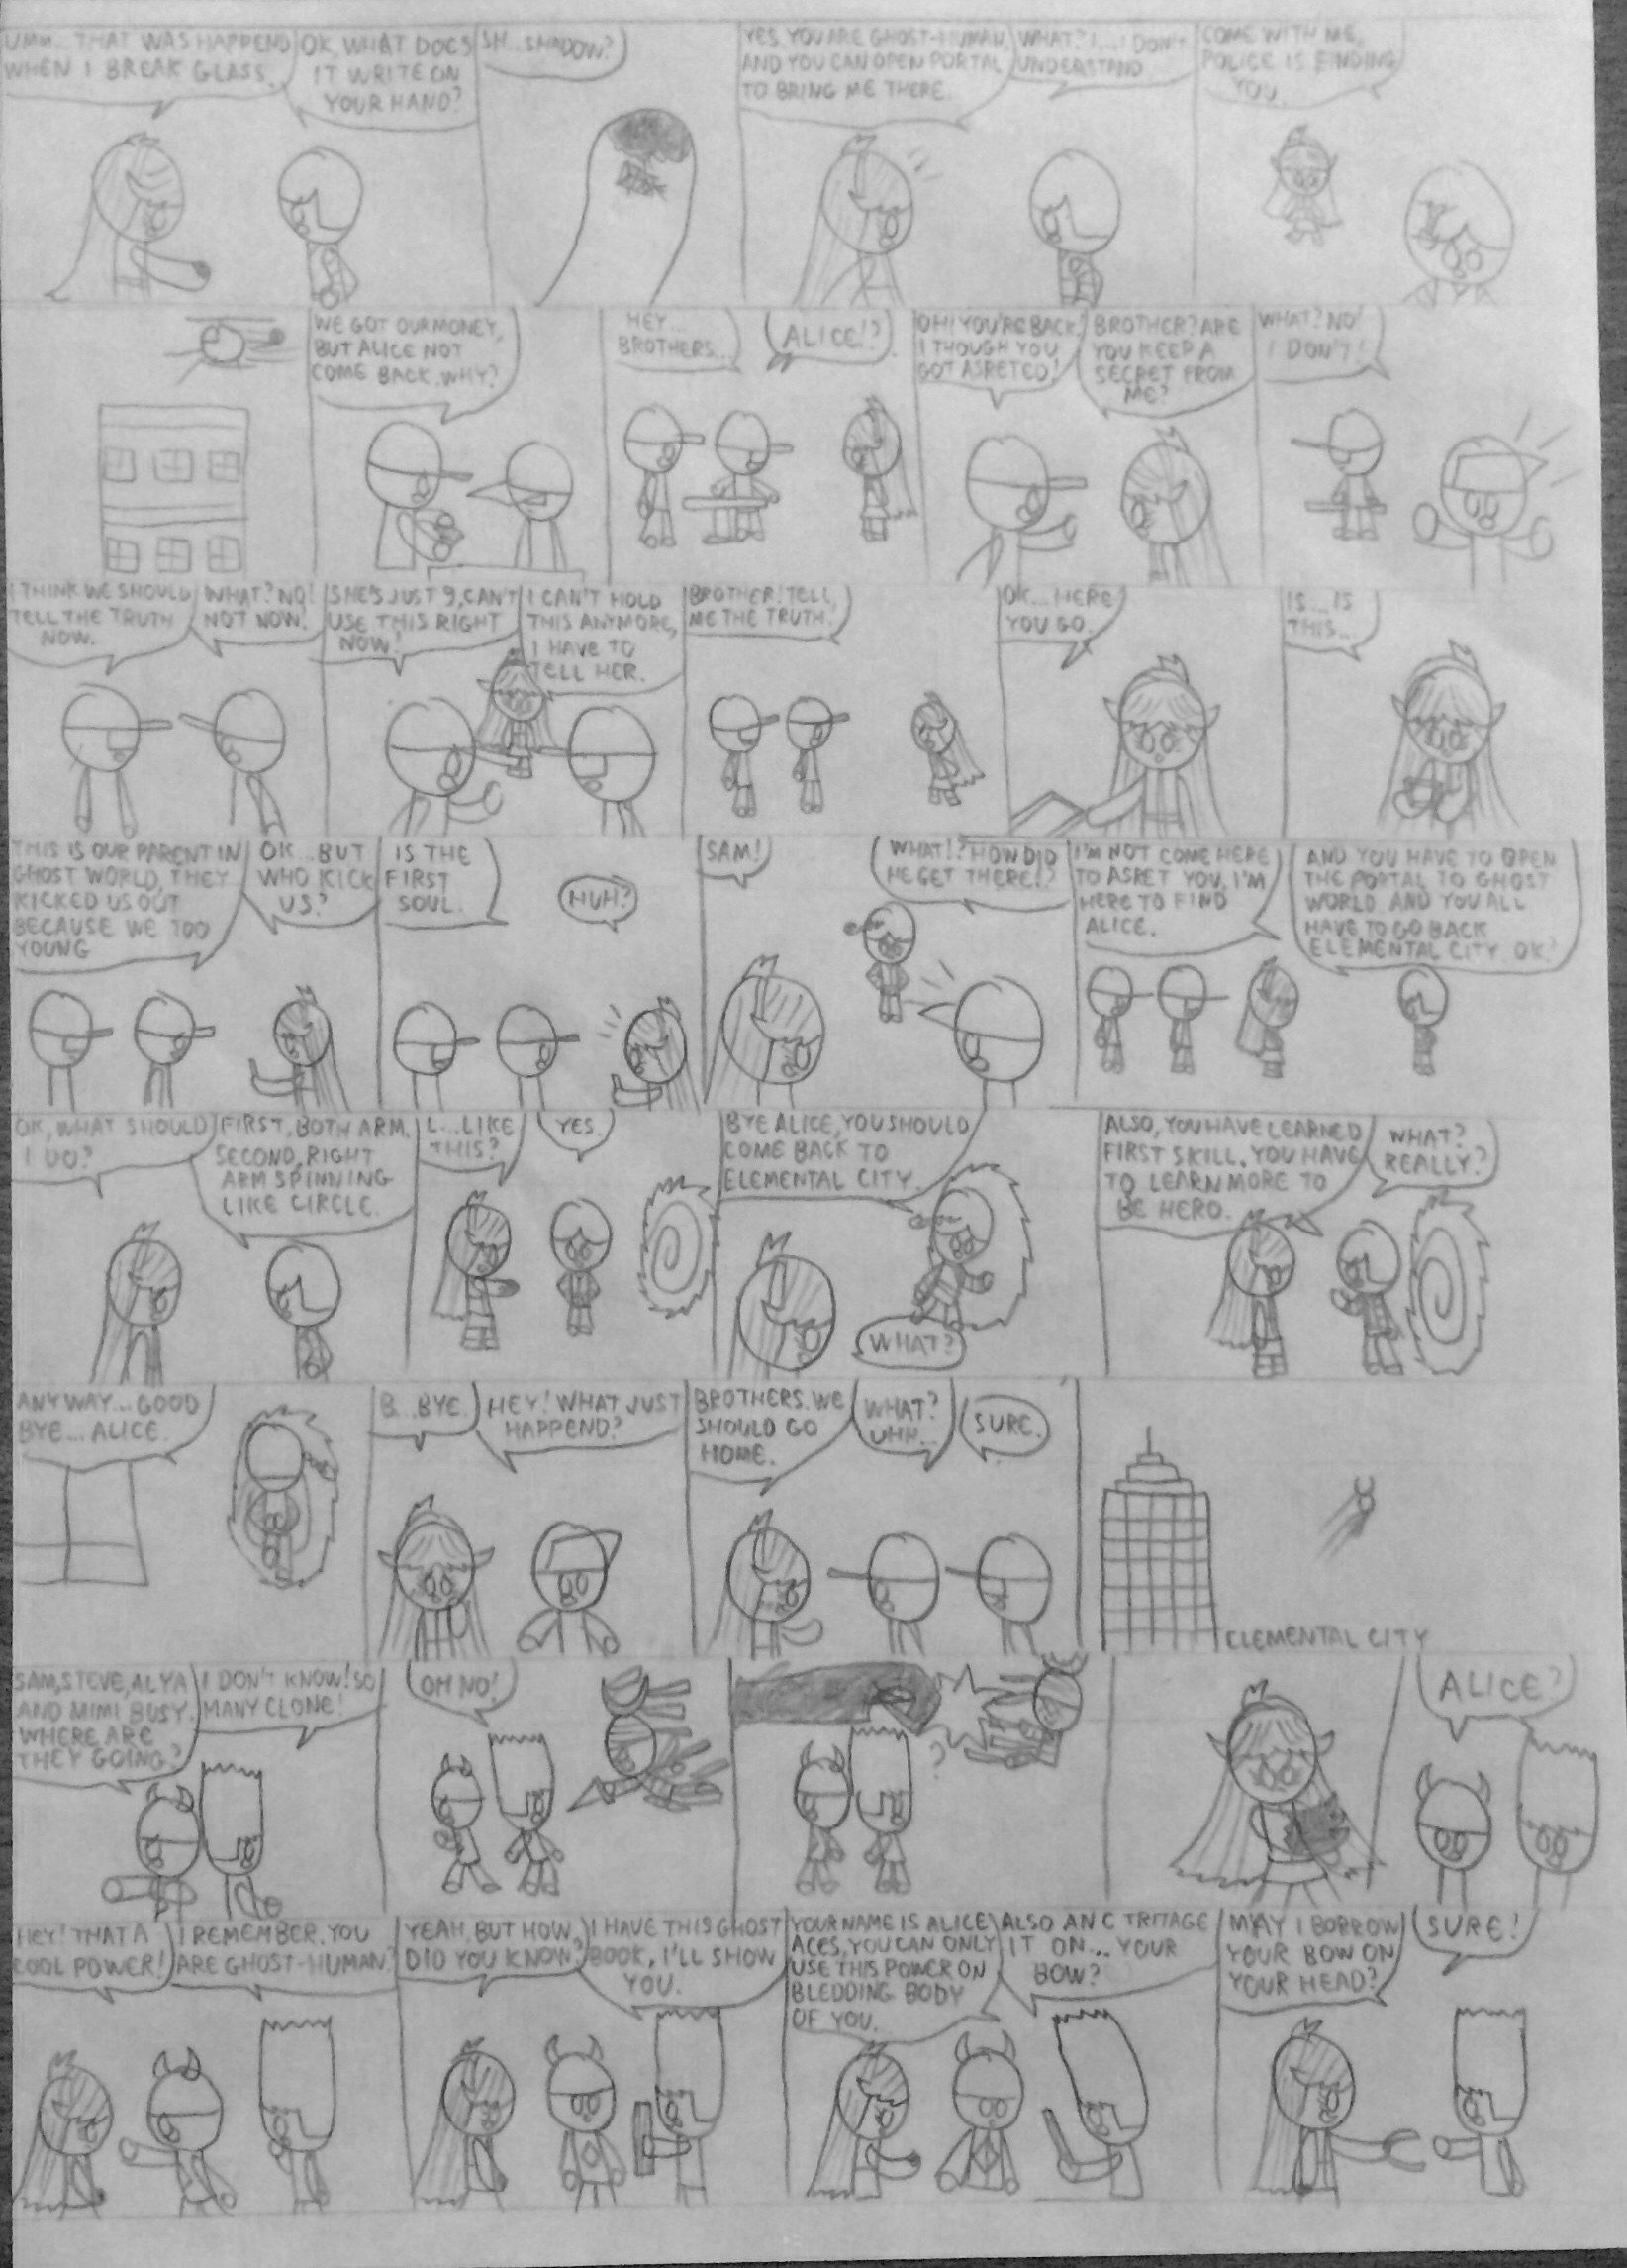 UMM... THAT WAS HAPPEND
WHEN I BREAK GLASS.
OK, WHAT DOES
IT WRITE ON
YOUR HAND?
SH...SHADOW?
YES, YOU ARE GHOST-HUMAN,
AND YOU CAN OPEN PORTAL
TO BRING ME THERE.
WHAT? I... I DON'T
UNDERSTAND
COME WITH ME,
POLICE IS FINDING
YOU.
WE GOT OUR MONEY,
BUT ALICE NOT
COME BACK. WHY?
HEY...
BROTHERS...
ALICE!?
OH! YOU'RE BACK!
I THOUGH YOU
GOT ASRETED!
BROTHER? ARE
YOU KEEP A
SECRET FROM
ME?
WHAT? NO!
I DON'T!
I THINK WE SHOULD
TELL THE TRUTH
NOW.
WHAT? NO!
NOT NOW!
SHE'S JUST 9, CAN'T
USE THIS RIGHT
NOW!
I CAN'T HOLD
THIS ANYMORE,
I HAVE TO
TELL HER.
BROTHER! TELL
ME THE TRUTH!
OK... HERE
YOU GO.
IS... IS
THIS...
THIS IS OUR PARENT IN
GHOST WORLD, THEY
KICKED US OUT
BECAUSE WE TOO
YOUNG
OK...BUT
WHO KICK
US?
IS THE
FIRST
SOUL.
HUH?
SAM!
WHAT!? HOW DID
HE GET THERE!?
I'M NOT COME HERE
TO ASRET YOU, I'M
HERE TO FIND
ALICE.
AND YOU HAVE TO OPEN
THE PORTAL TO GHOST
WORLD. AND YOU ALL
HAVE TO GO BACK
ELEMENTAL CITY. OK?
OK, WHAT SHOULD
I DO?
FIRST, BOTH ARM.
SECOND, RIGHT
ARM SPINNING
LIKE CIRCLE.
L...LIKE
THIS?
YES.
BYE ALICE, YOU SHOULD
COME BACK TO
ELEMENTAL CITY.
WHAT?
ALSO, YOU HAVE LEARNED
FIRST SKILL. YOU HAVE
TO LEARN MORE TO
BE HERO.
WHAT?
REALLY?
ANYWAY...GOOD
BYE... ALICE.
B...BYE.
HEY! WHAT JUST
HAPPEND?
BROTHERS. WE
SHOULD GO
HOME.
WHAT?
UHH...
SURE.
ELEMENTAL CITY
SAM, STEVE, ALYA
AND MIMI BUSY.
WHERE ARE
THEY GOING?
I DON'T KNOW! SO
MANY CLONE!
OH NO!
?
ALICE?
HEY! THAT A
COOL POWER!
I REMEMBER, YOU
ARE GHOST-HUMAN?
YEAH, BUT HOW
DID YOU KNOW?
I HAVE THIS GHOST
BOOK, I'LL SHOW
YOU.
YOUR NAME IS ALICE
ACES, YOU CAN ONLY
USE THIS POWER ON
BLEDDING BODY
OF YOU.
ALSO AN C TRITAGE
IT ON... YOUR
BOW?
MAY I BORROW
YOUR BOW ON
YOUR HEAD?
SURE!